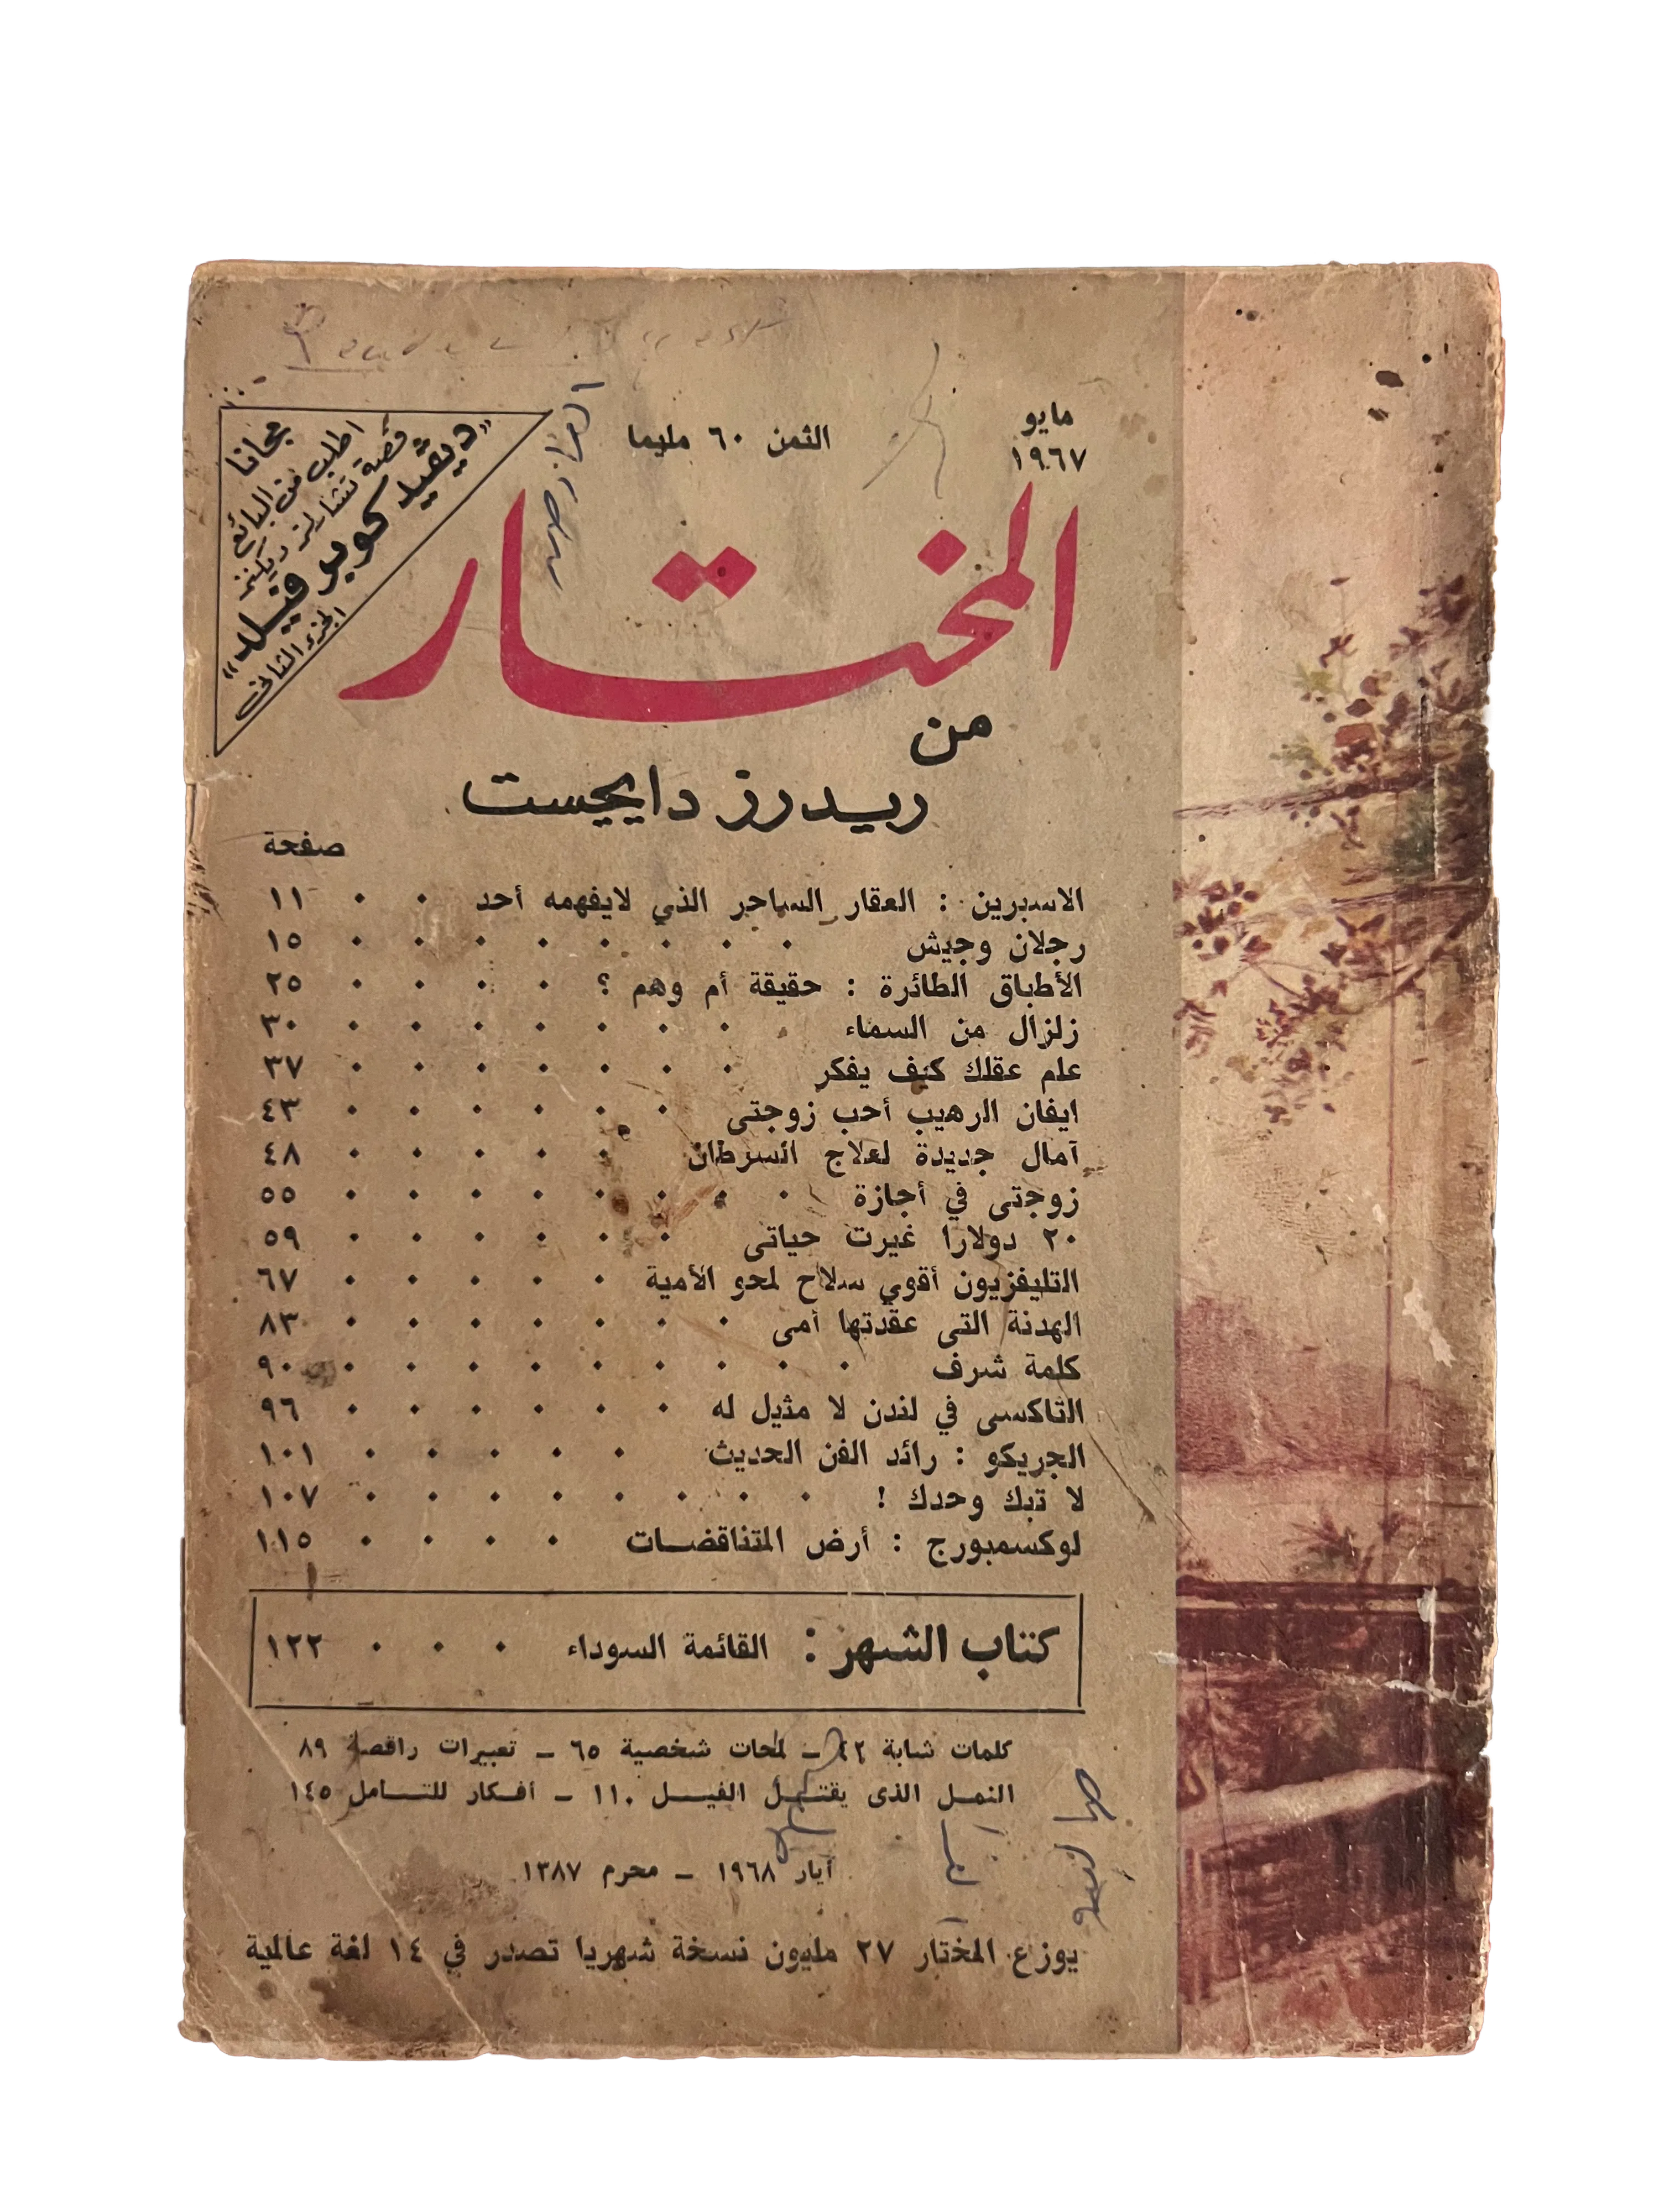 مايو
١٩٦٧
الثمن ٦٠ مليما
مجانا
اطلب من البائع
قصة تشارلز ديكنز
«ديڤيد كوبر فيلد»
الجزء الثانى
المختار
من
ريدرز دايجيست
صفحة
الاسبرين : العقار الساحر الذي لايفهمه أحد . . ١١
رجلان وجيش . . . . . . . . ١٥
الأطباق الطائرة : حقيقة أم وهم ؟ . . . . ٢٥
زلزال من السماء . . . . . . . . ٣٠
علم عقلك كيف يفكر . . . . . . . ٣٧
ايفان الرهيب أحب زوجتى . . . . . . ٤٣
آمال جديدة لعلاج السرطان . . . . . ٤٨
زوجتى في أجازة . . . . . . . . ٥٥
٢٠ دولارا غيرت حياتى . . . . . . ٥٩
التليفزيون أقوي سلاح لمحو الأمية . . . . . ٦٧
الهدنة التى عقدتها أمى . . . . . . . ٨٣
كلمة شرف . . . . . . . . . ٩٠
التاكسى في لندن لا مثيل له . . . . . . ٩٦
الجريكو : رائد الفن الحديث . . . . . ١٠١
لا تبك وحدك ! . . . . . . . . ١٠٧
لوكسمبورج : أرض المتناقضات . . . . ١١٥
كتاب الشهر : القائمة السوداء . . . ١٢٢
كلمات شابة ٤٢ – لمحات شخصية ٦٥ – تعبيرات راقصة ٨٩
النمل الذى يقتل الفيل ١١٠ – أفكار للتأمل ١٤٥
آيار ١٩٦٨ – محرم ١٣٨٧
يوزع المختار ٢٧ مليون نسخة شهريا تصدر في ١٤ لغة عالمية